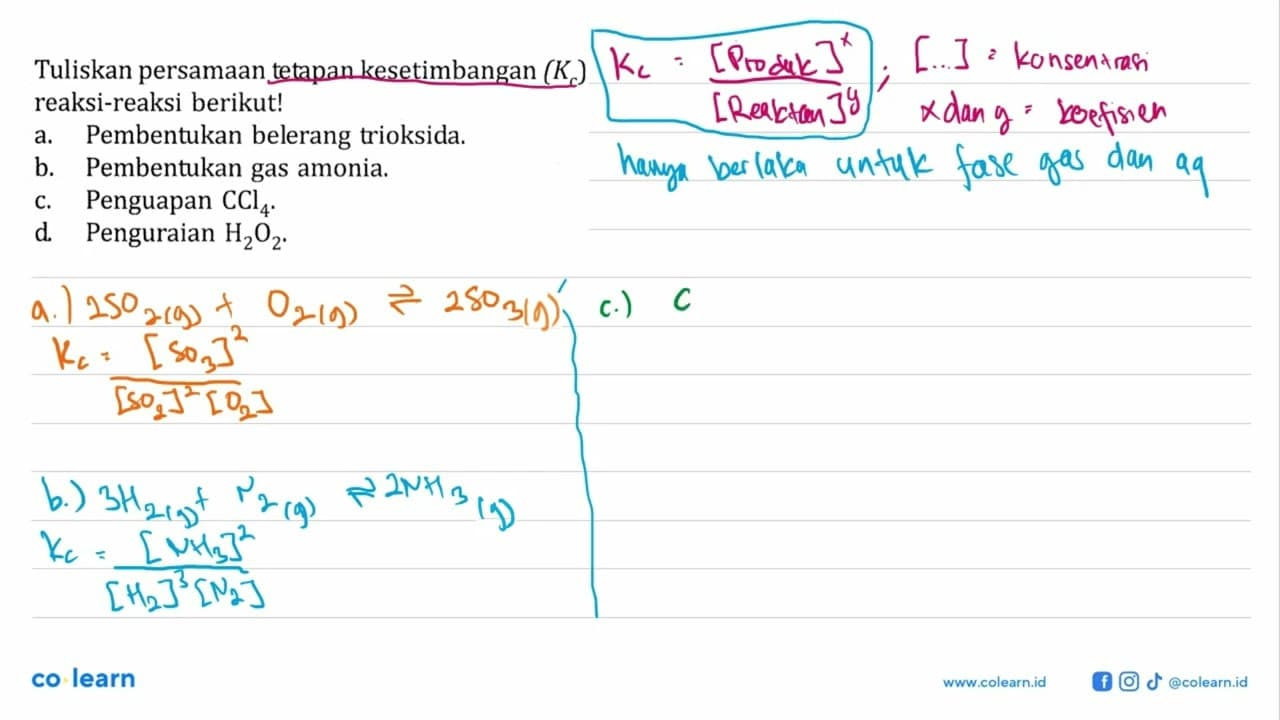 Tuliskan persamaan tetapan kesetimbangan (Kc)
reaksi-reaksi berikut!
a. Pembentukan belerang trioksida.
b. Pembentukan gas amonia.
c. Penguapan CCl₄.
d. Penguraian H₂O₂.
Kc = [Produk]ˣ / [Reaktan]ʸ ; [...] = konsentrasi
x dan y = koefisien
hanya berlaku untuk fase gas dan aq
a.) 2SO₂(g) + O₂(g) ⇌ 2SO₃(g)
Kc = [SO₃]²
[SO₂]² [O₂]
b.) 3H₂(g) + N₂(g) ⇌ 2NH₃(g)
Kc = [NH₃]²
[H₂]³ [N₂]
c.) C
co learn
www.colearn.id
@colearn.id